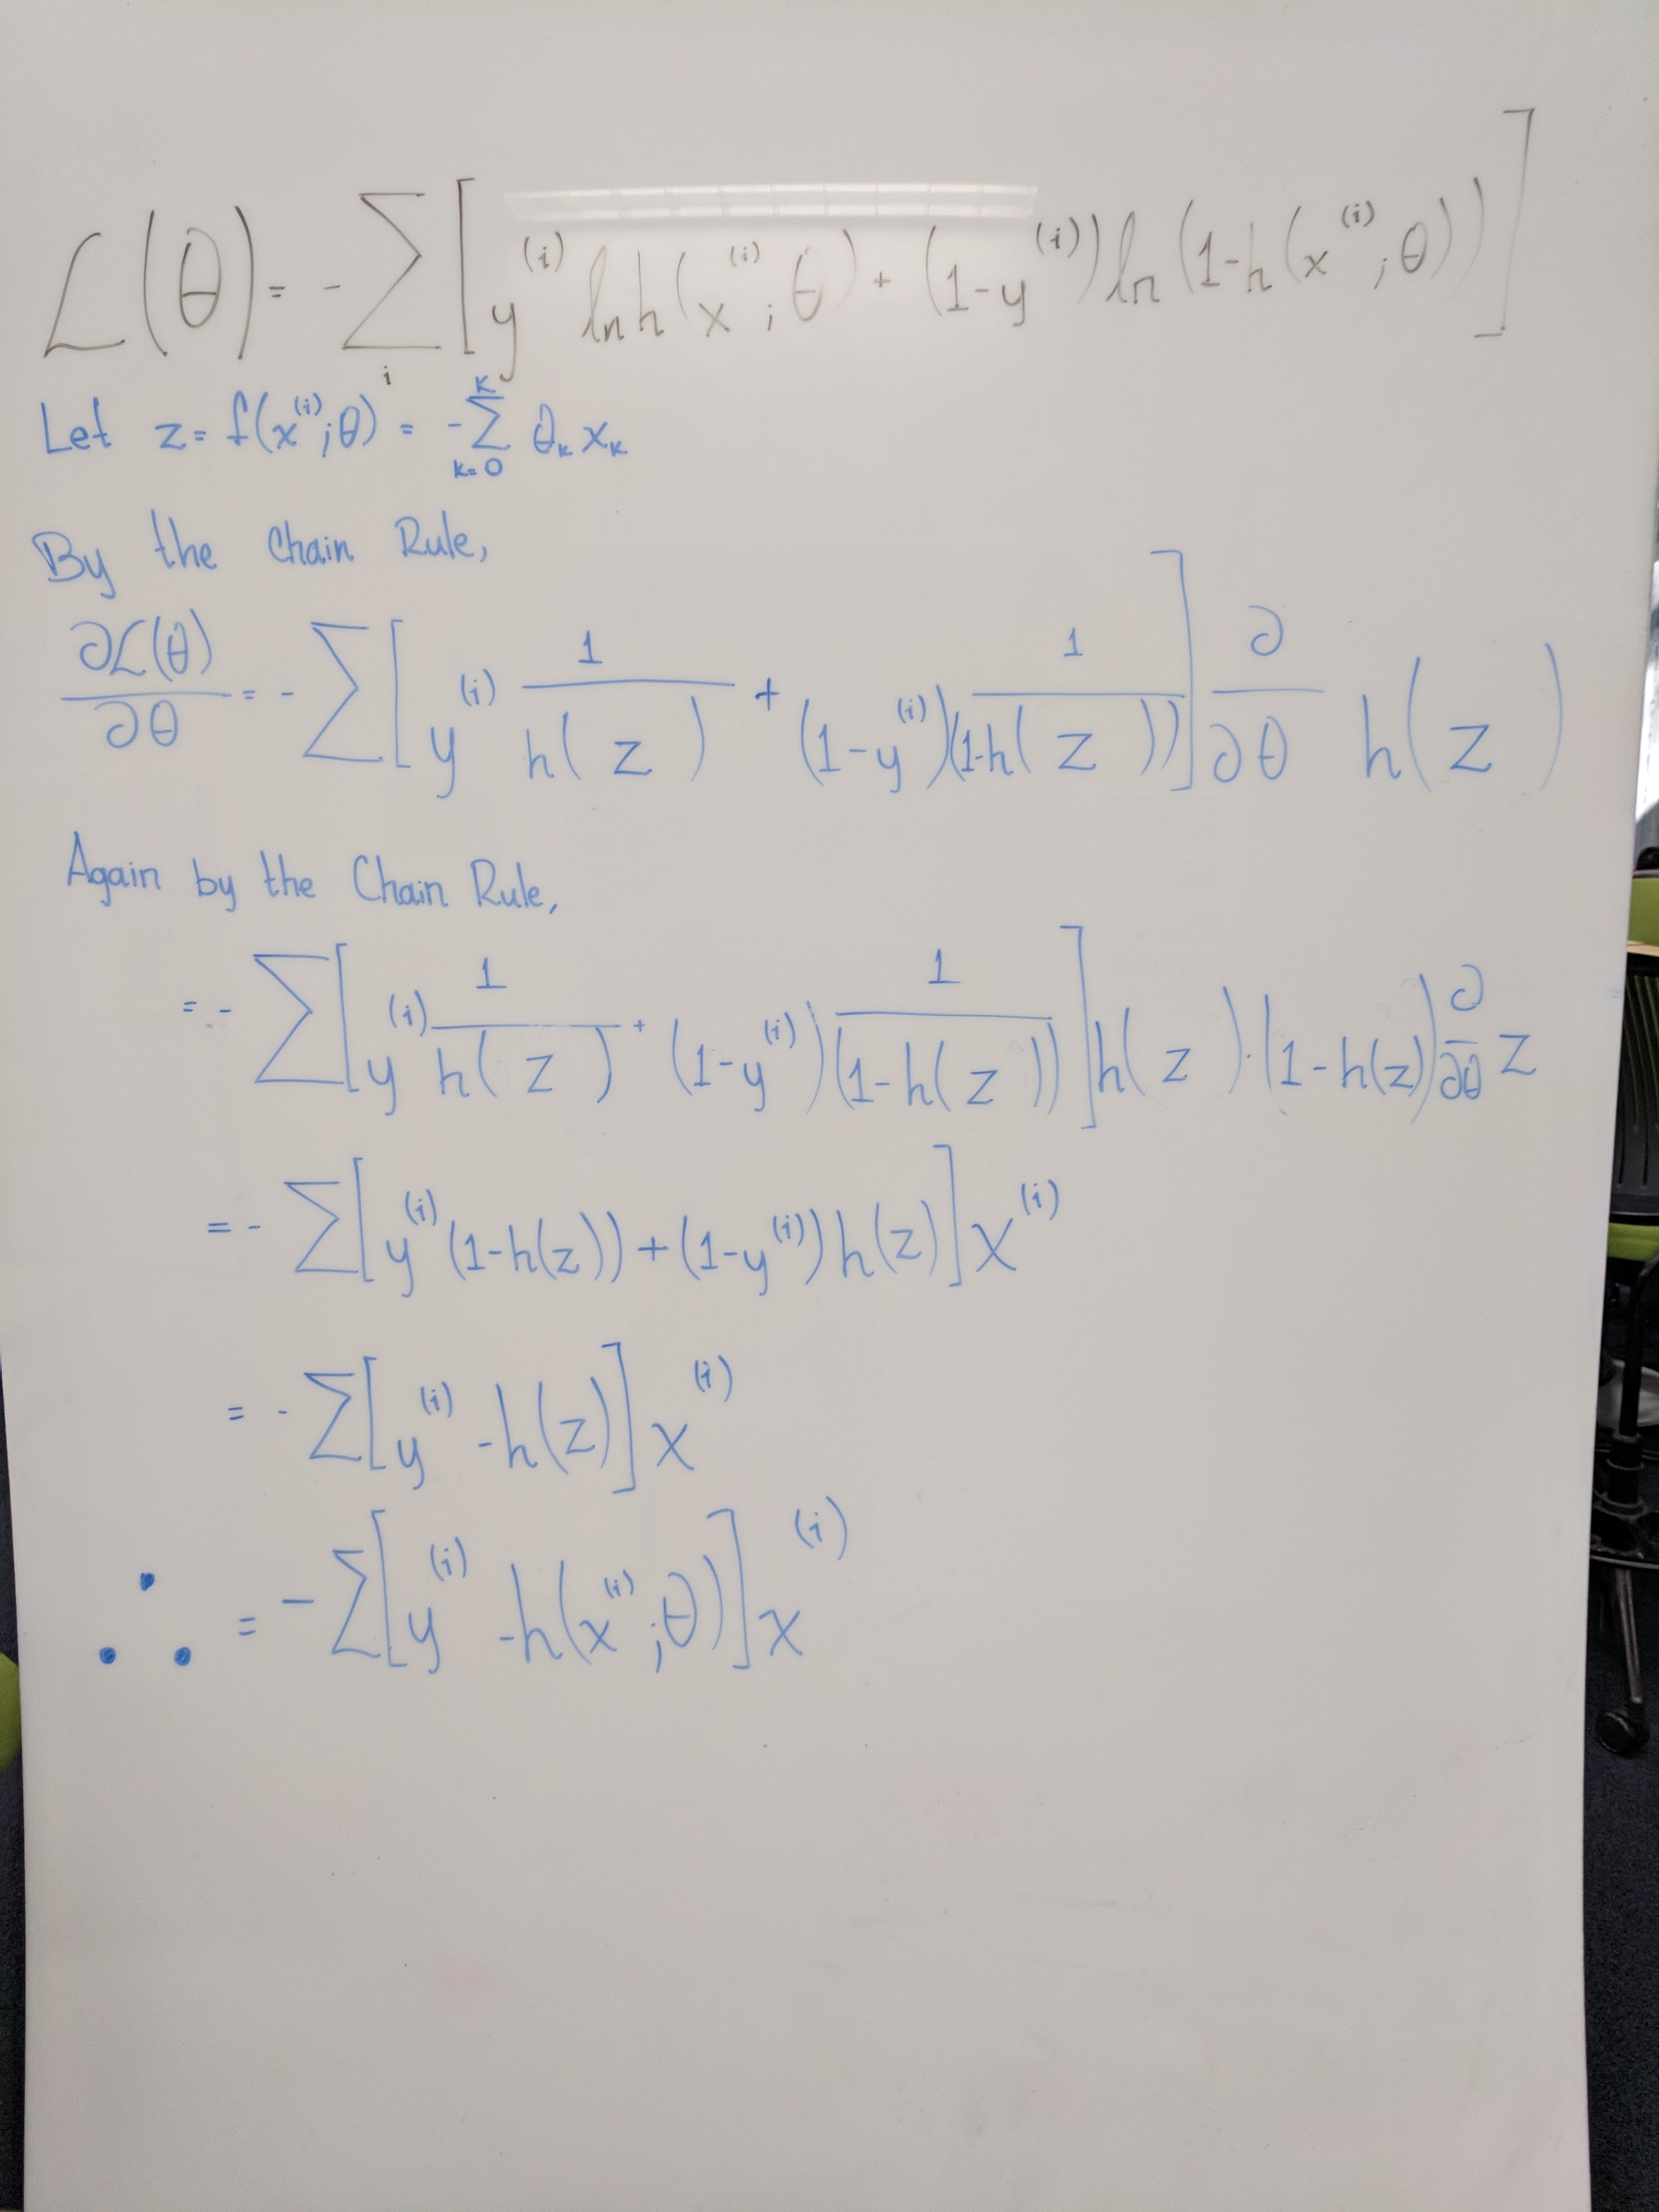 L(θ) = - ∑_i [ y^(i) ln h(x^(i) ; θ) + (1-y^(i)) ln (1-h(x^(i) ; θ)) ]
Let z = f(x^(i) ; θ) = - ∑_{k=0}^{K} θ_k x_k
By the Chain Rule,
∂L(θ)/∂θ = - ∑ [ y^(i) 1/h(z) + (1-y^(i)) 1/(1-h(z)) ] ∂/∂θ h(z)
Again by the Chain Rule,
= - ∑ [ y^(i) 1/h(z) + (1-y^(i)) 1/(1-h(z)) ] h(z) · (1-h(z)) ∂/∂θ z
= - ∑ [ y^(i) (1-h(z)) + (1-y^(i)) h(z) ] x^(i)
= - ∑ [ y^(i) - h(z) ] x^(i)
∴ = - ∑ [ y^(i) - h(x^(i) ; θ) ] x^(i)